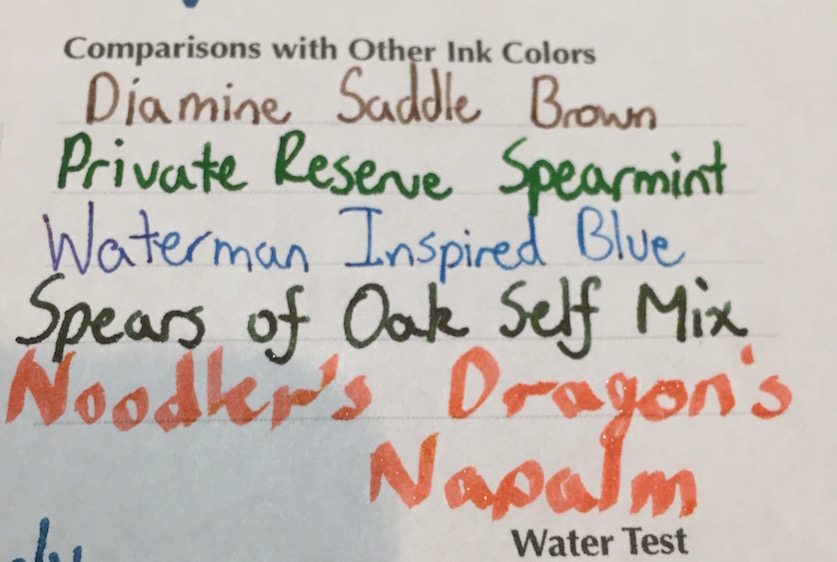 Comparisons with Other Ink Colors
Diamine Saddle Brown
Private Reserve Spearmint
Waterman Inspired Blue
Spears of Oak Self Mix
Noodler's Dragon's
Napalm
Water Test